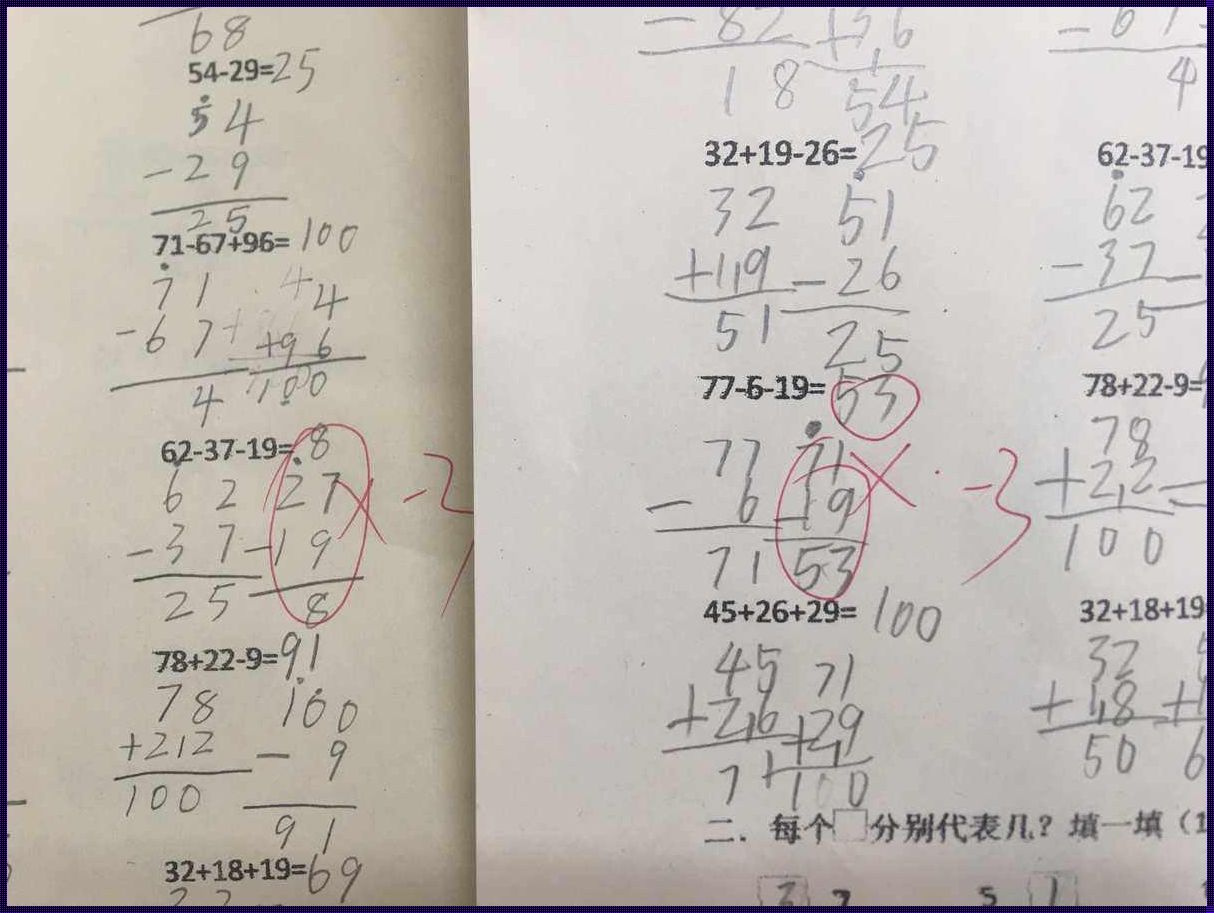 68
54-29=25
54
-29
25
71-67+96=100
71 44
-67 +96
4 100
62-37-19=8
62 27
-37 -19
25 8
-3
78+22-9=91
78 100
+22 -9
100 91
32+18+19=69
-82 +36
18 54
32+19-26=25
32 51
+19 -26
51 25
77-6-19=53
77 71
-6 -19
71 53
-3
45+26+29=100
45 71
+26 +29
71 100
二. 每个□分别代表几?填一填(1
3
5 1
4
62-37-19
62
-37
25
78+22-9=
78
+22
100
32+18+19
32
+18
50 6